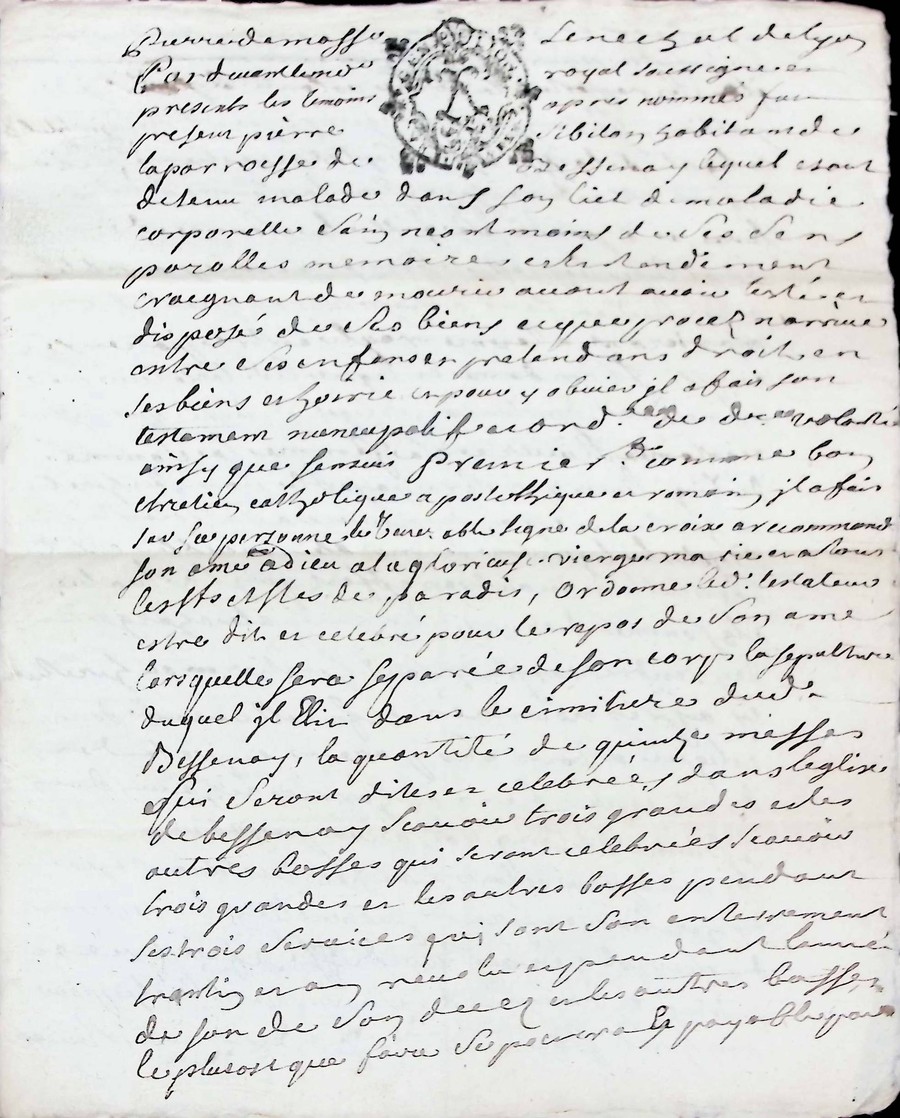 Pierre de masso Senechal de lyon
Pardevant le no.re royal soussigne et
presents les temoins apres nommés fut
present pierre Sibilon habitant de
la parroesse de Bessenay lequel etant
detenu malade dans son liet de maladie
corporelle Sain neantmoins de Ses Sens
parolles memoire et entandement
craegnant de mourir avant avoir testé et
disposé de Ses biens et que procez n'arrive
entre Ses enfens et pretendans droit en
ses biens et hoirie et pour y obvier jl a fait son
testament noncupatif et ord.ce de d.re volonté
ainsy que sensuit Premier.t comme bon
chretien catholique apostollique et romain jl a fait
sur sa personne le venerable signe de la croix a recommandé
son ame a dieu a la glorieuse vierge marie et a tous
les sts et stes de paradis, ordonne led.t testateur
estre dit et celebré pour le repos de Son ame
lorsquelle sera separée de son corps la sepulture
duquel jl Elit dans le cimitiere dud.t
Bessenay, la quantité de quinze messes
qui Seront dites et celebrées dans leglise
de bessenay scavoir trois grandes et les
autres basses qui seront celebrées scavoir
trois grandes et les autres basses pendant
ses trois Services qui sont Son enterrement
trantin et an revolu et pendant lannée
de son de Son decez et les autres basses
le plutost que faire Se pourra payable par